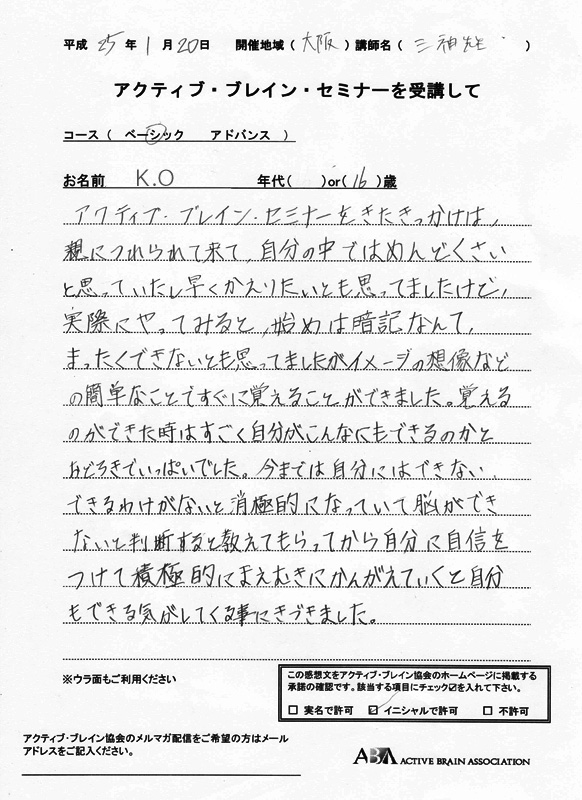 平成 25 年 1 月 20 日 開催地域（ 大阪 ）講師名（ 三神先生 ）
アクティブ・ブレイン・セミナーを受講して
コース（ ベーシック アドバンス ）
お名前 K.O 年代（ ）or（ 16 ）歳
アクティブ・ブレイン・セミナーをきたきっかけは、
親につれられて来て、自分の中ではめんどくさい
と思っていたし早くかえりたいとも思ってましたけど、
実際にやってみると、始めは暗記なんて、
まったくできないとも思ってましたがイメージの想像など
の簡単なことですぐに覚えることができました。覚える
のができた時はすごく自分がこんなにもできるのかと
おどろきでいっぱいでした。今までは自分にはできない、
できるわけがないと消極的になっていて脳ができ
ないと判断すると教えてもらってから自分に自信を
つけて積極的にまえむきにかんがえていくと自分
もできる気がしてくる事にきづきました。
※ウラ面もご利用ください
この感想文をアクティブ・ブレイン協会のホームページに掲載する
承諾の確認です。該当する項目にチェック☑を入れて下さい。
□ 実名で許可 ☑ イニシャルで許可 □ 不許可
アクティブ・ブレイン協会のメルマガ配信をご希望の方はメール
アドレスをご記入ください。
ABA ACTIVE BRAIN ASSOCIATION